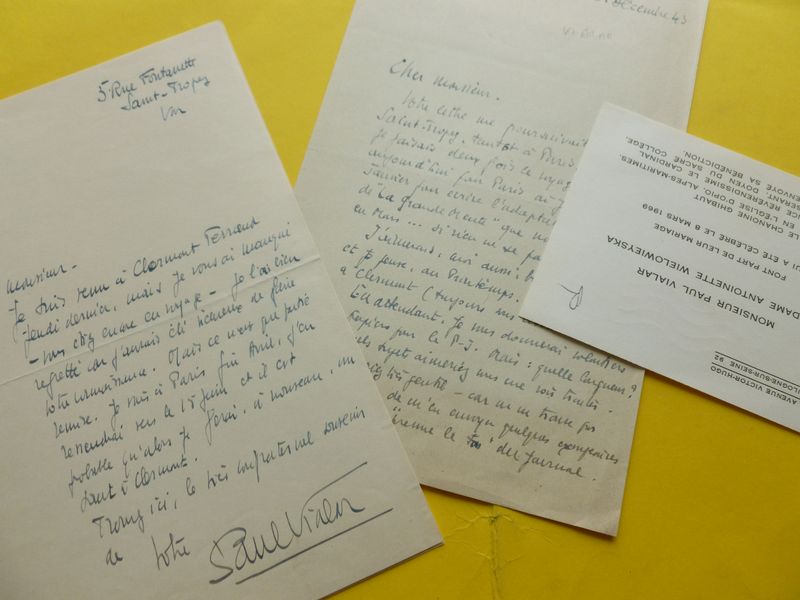 5 Rue Fontanette
Saint-Tropez
Var
Monsieur -
Je suis venu à Clermont Ferrand
jeudi dernier, mais je vous ai manqué
- vous étiez en voyage - Je l'ai bien
regretté car j'aurais été heureux de faire
votre connaissance. Mais ce n'est que partie
remise. Je suis à Paris fin Avril, j'en
reviendrai vers le 15 juin et il est
probable qu'alors je ferai, à nouveau, un
saut à Clermont.
Trouvez ici, le très confraternel souvenir
de votre
Paul Vialar
Décembre 43
VIALAR
Cher Monsieur.
Votre lettre me poursuivait
Saint-Tropez, tantôt à Paris
Je faisais deux fois le voyage
aujourd'hui pour Paris
Janvier pour écrire
de "La grande Meute" que
en Mars... si rien ne se
J'aimerais, moi aussi,
et je pense, au Printemps.
à Clermont (toujours
En attendant, je vous donnerai volontiers
papiers pour le P-J. Mais : quelle longueur ?
quels sujets aimeriez vous me voir traiter.
très gentil - car on ne trouve pas
de m'en envoyer quelques exemplaires
prenne le ton du Journal.
AVENUE VICTOR-HUGO
BOULOGNE-SUR-SEINE
92
MONSIEUR PAUL VIALAR
MADAME ANTOINETTE WIELOWIEYSKA
FONT PART DE LEUR MARIAGE
QUI A ÉTÉ CÉLÉBRÉ LE 8 MARS 1969
LE CHANOINE GHIBAUT
EN L'ÉGLISE D'OPIO, ALPES-MARITIMES.
RÉVÉRENDISSIME LE CARDINAL
TISSERANT, DOYEN DU SACRÉ COLLÈGE,
ENVOYÉ SA BÉNÉDICTION.